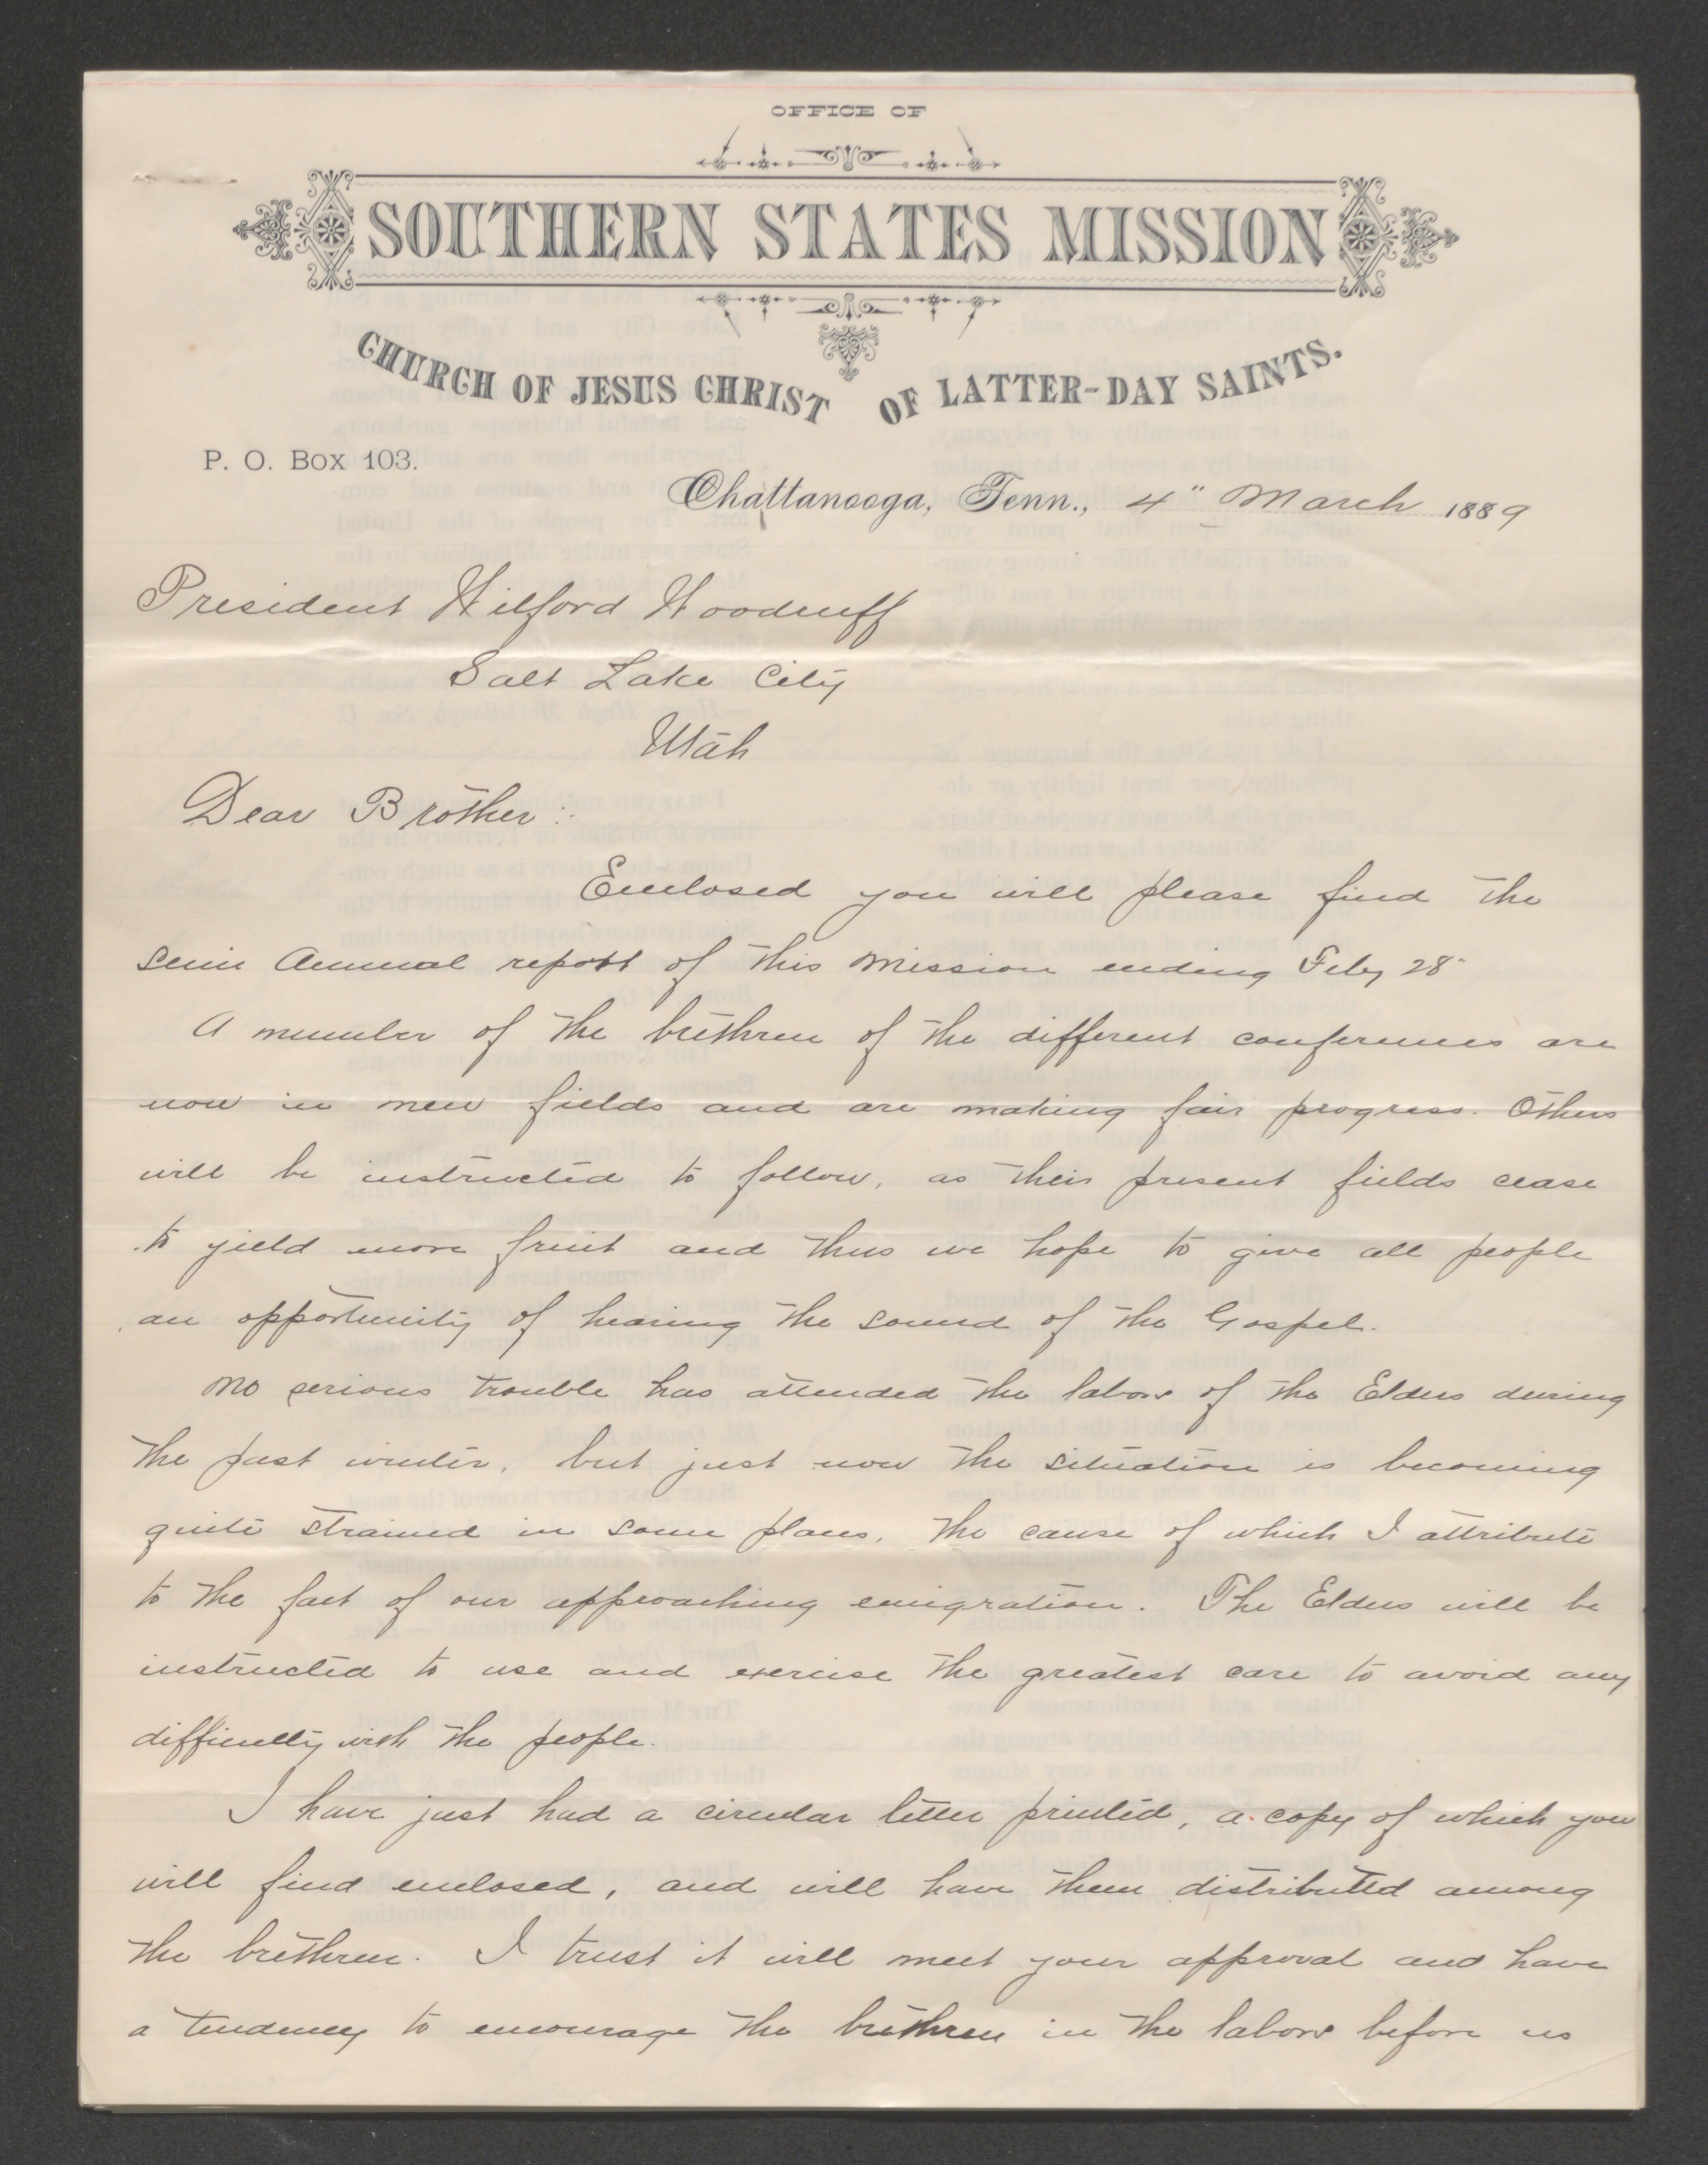 OFFICE OF
SOUTHERN STATES MISSION
CHURCH OF JESUS CHRIST OF LATTER-DAY SAINTS.
P. O. Box 103.
Chattanooga, Tenn., 4" March 1889
President Wilford Woodruff
Salt Lake City
Utah
Dear Brother:
Enclosed you will please find the
semi Annual report of this Mission ending Feby 28"
A number of the brethren of the different conferences are
now in new fields and are making fair progress. Others
will be instructed to follow, as their present fields cease
to yield more fruit and thus we hope to give all people
an opportunity of hearing the sound of the Gospel.
No serious trouble has attended the labors of the Elders during
the past winter, but just now the situation is becoming
quite strained in some places, the cause of which I attribute
to the fact of our approaching emigration. The Elders will be
instructed to use and exercise the greatest care to avoid any
difficulty with the people.
I have just had a circular letter printed, a copy of which you
will find enclosed, and will have them distributed among
the brethren. I trust it will meet your approval and have
a tendency to encourage the brethren in the labors before us